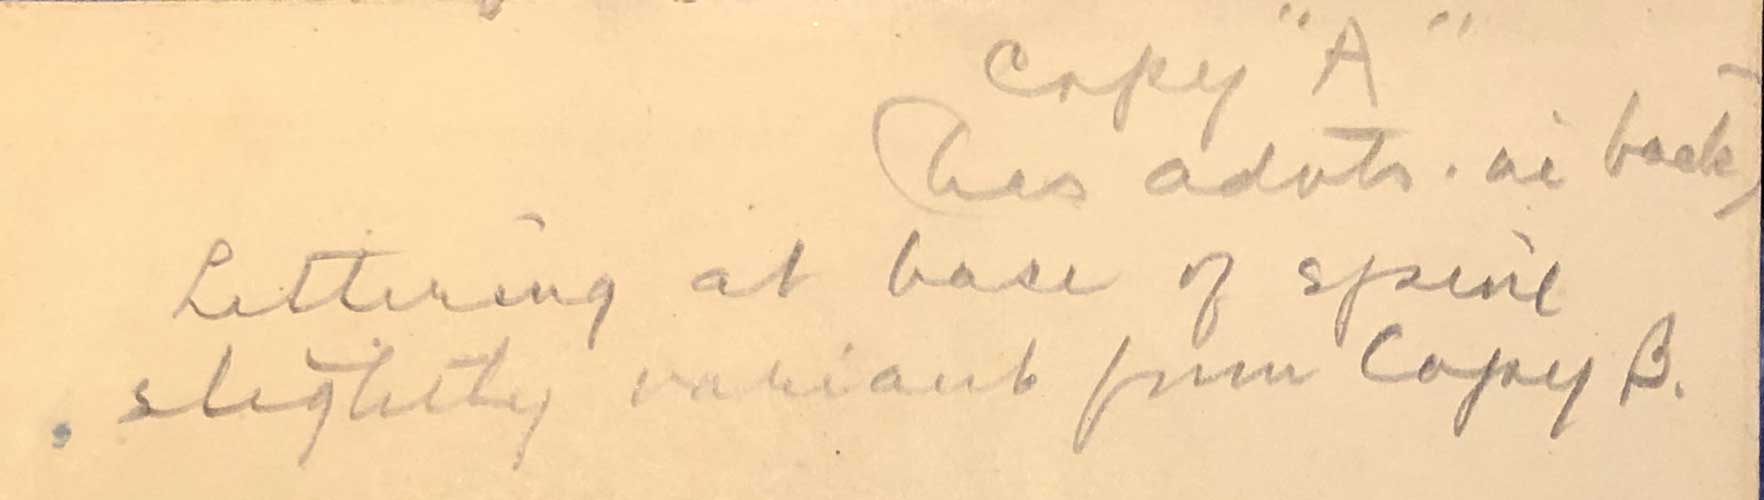 Copy "A"
(has advts. in back)
Lettering at base of spine
slightly variant from Copy B.